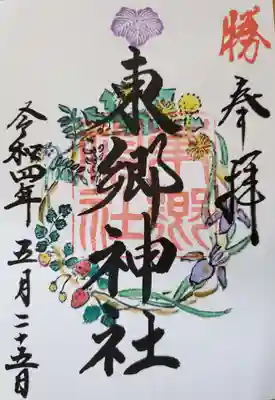 勝
奉拝
東郷神社
東郷神社
令和四年五月二十五日